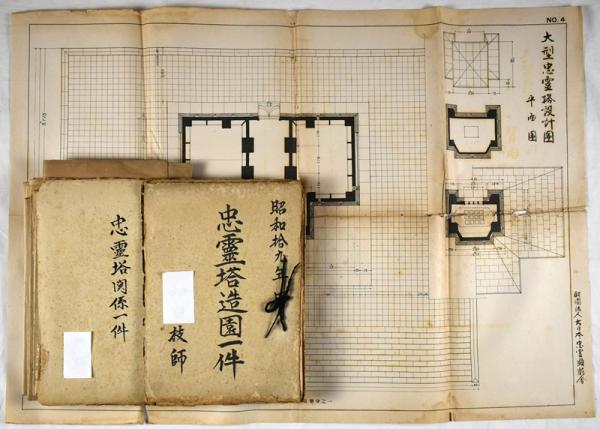 NO. 4
大型忠靈塔設計圖
平面圖
財團法人大日本忠靈顯彰會
昭和拾九年
忠靈塔造園一件
技師
忠靈塔関係一件